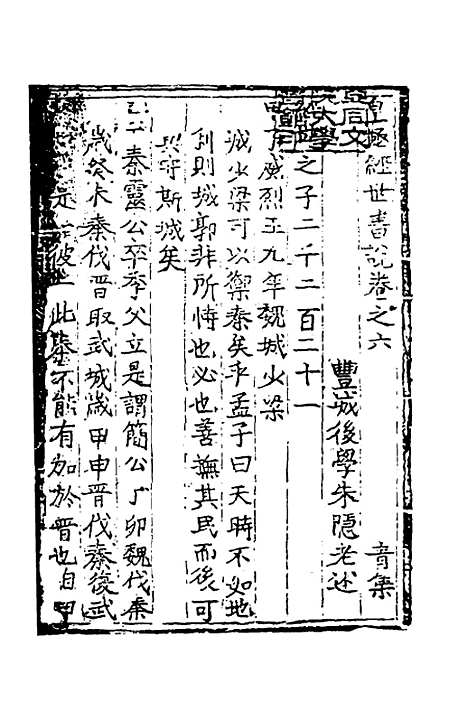 皇極經世書說卷之六 音集
豐城後學朱隱老述
之子二千二百二十一
威烈王九年魏城少梁
城少梁可以禦秦矣乎孟子曰天時不如地
利則城郭非所恃也必也善撫其民而後可
與守斯城矣
秦靈公卒季父立是謂簡公丁卯魏伐秦
歲癸未秦伐晉取武城歲甲申晉伐秦復武
是 彼 此秦不能有加於晉也自甲